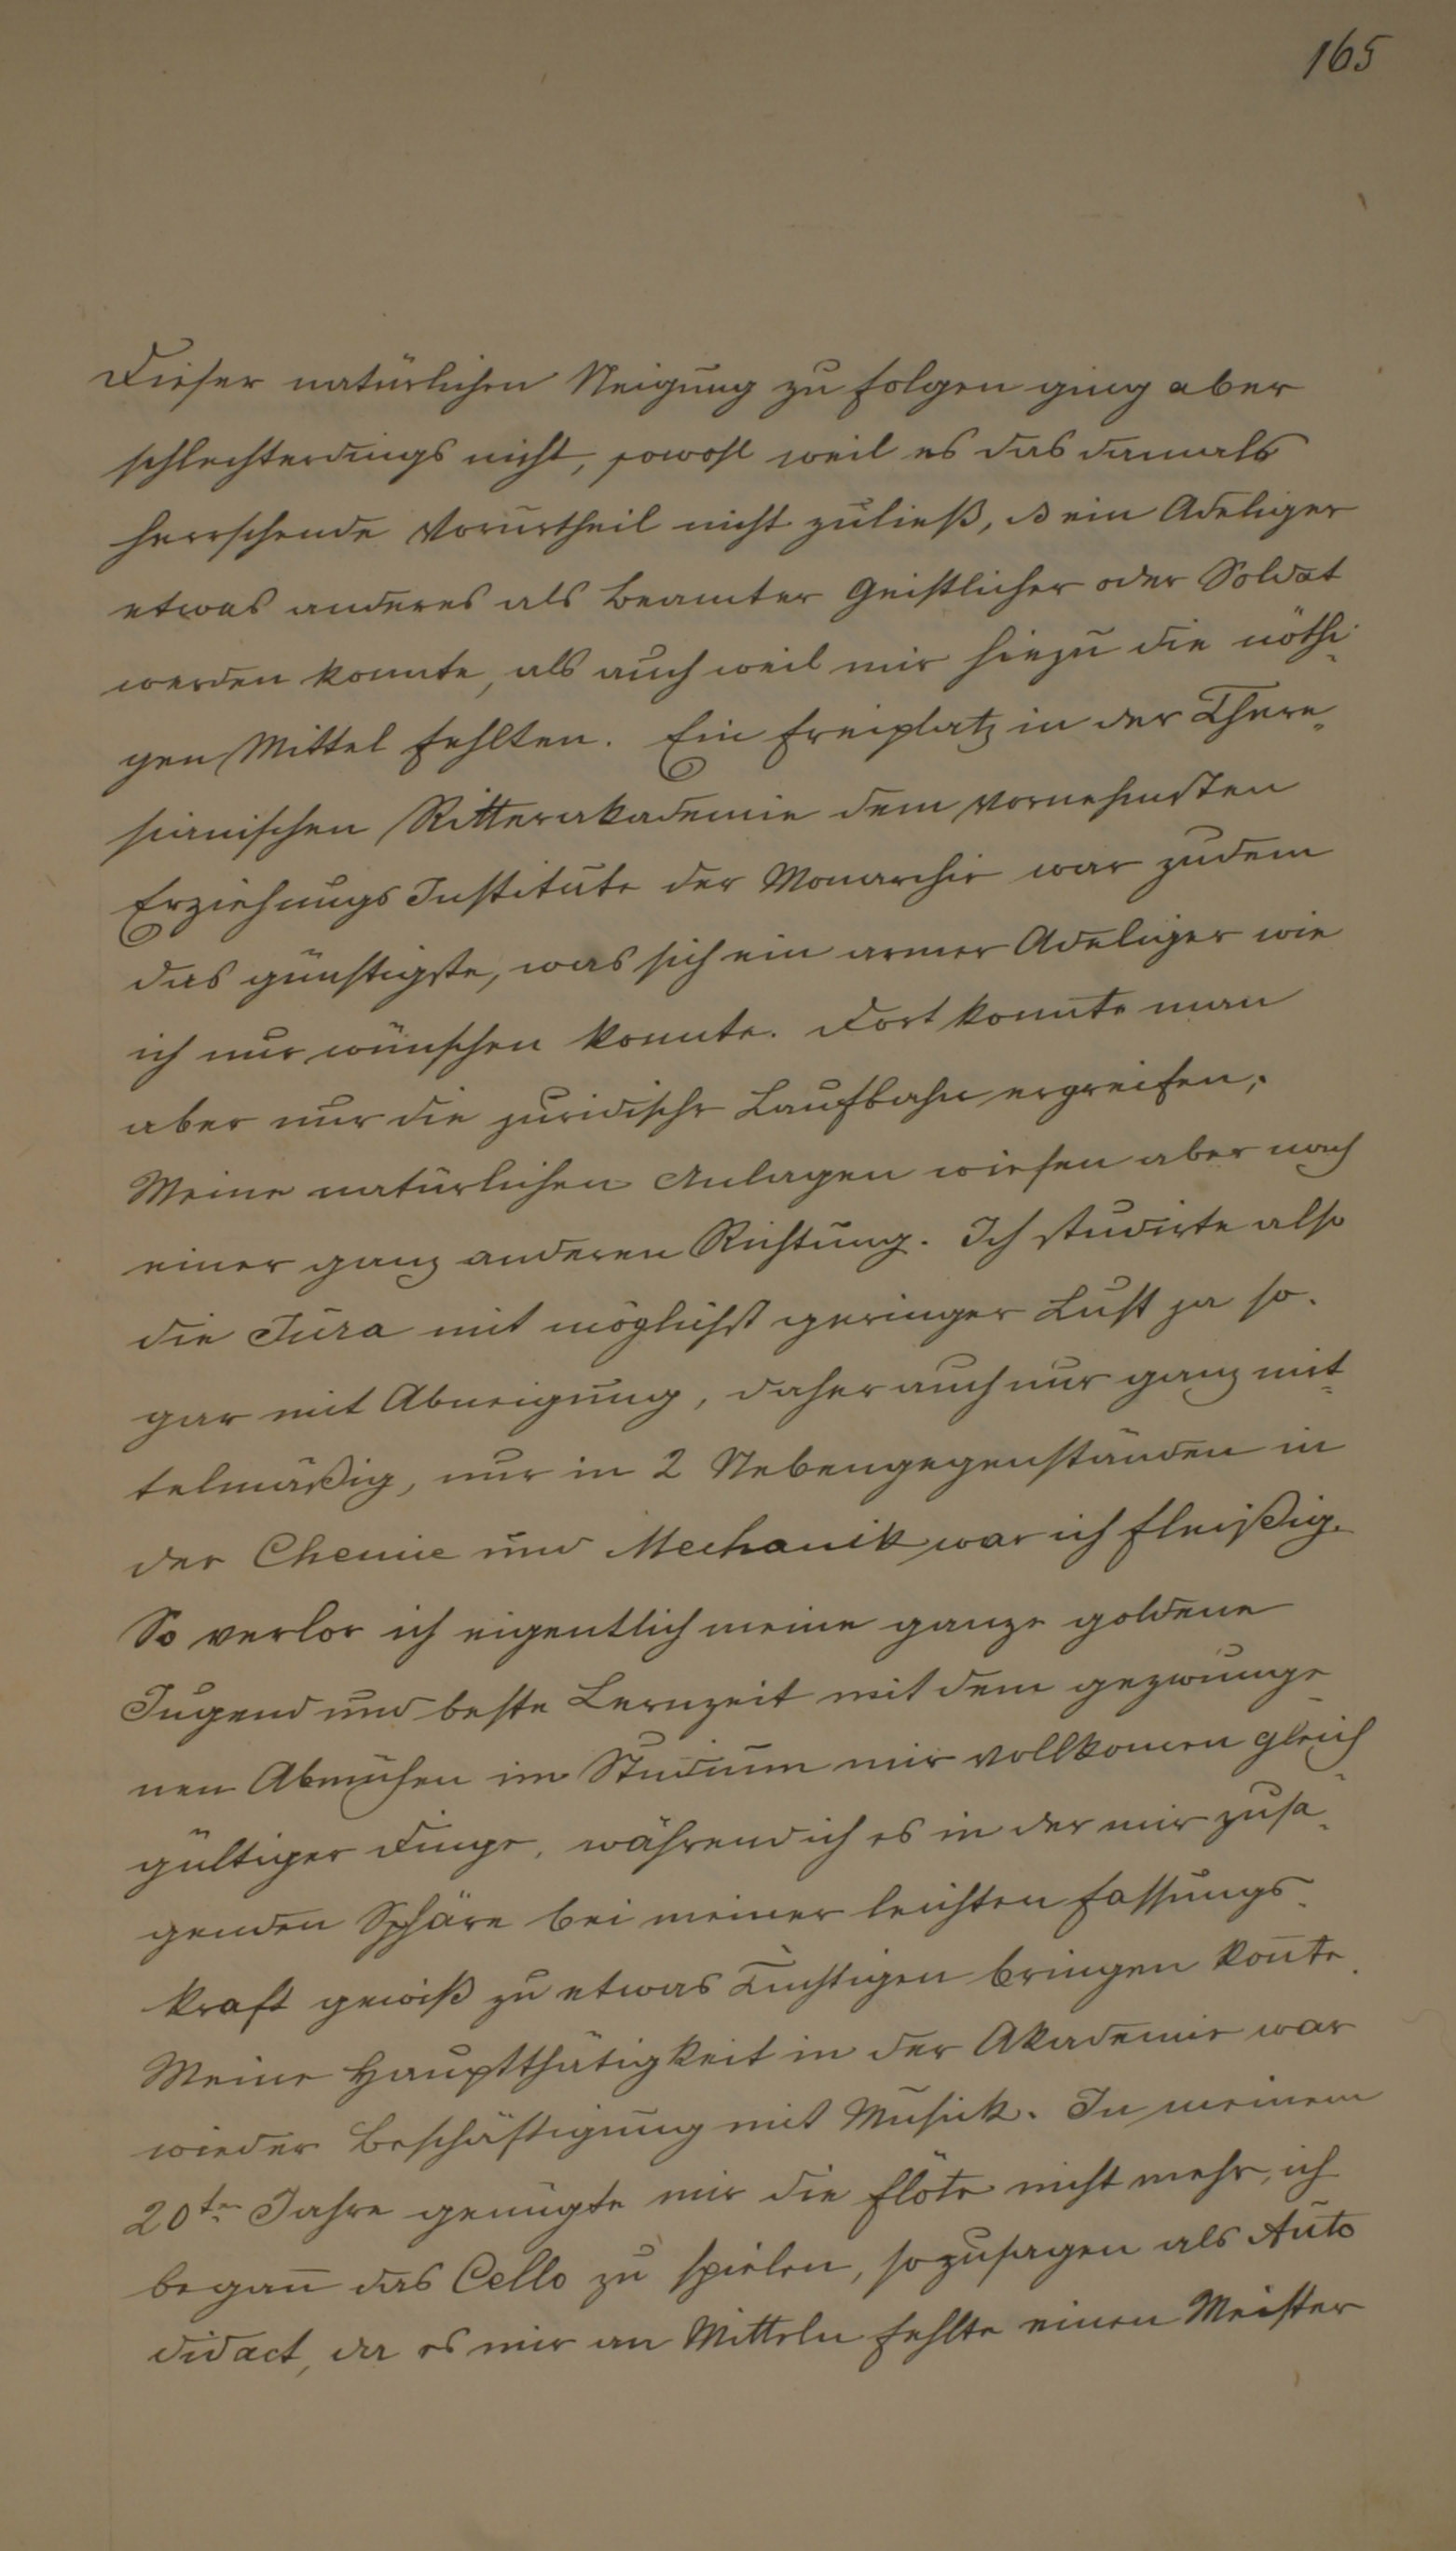 165
Dieser natürlichen Neigung zu folgen ging aber
schlechterdings nicht, sowohl weil es das damals
herrschende Vorurtheil nicht zuließ, ß ein Adeliger
etwas anderes als Beamter Geistlicher oder Soldat
werden konnte, als auch weil mir hiezu die nöthi-
gen Mittel fehlten. Ein Freiplatz in der There-
sianischen Ritterakademie dem vornehmsten
Erziehungs Institute der Monarchie war zudem
das günstigste, was sich ein armer Adeliger wie
ich nur wünschen konnte. Dort konnte man
aber nur die juridische Laufbahn ergreifen;
Meine natürlichen Anlagen wiesen aber nach
einer ganz anderen Richtung. Ich studirte also
die Jura mit möglichst geringer Lust ja so-
gar mit Abneigung, daher auch nur ganz mit-
telmäßig, nur in 2 Nebengegenständen in
der Chemie und Mechanik war ich fleißig.
So verlor ich eigentlich meine ganze goldene
Jugend und beste Lernzeit mit dem gezwunge-
nen Abmühen im Studium mir vollkomen gleich-
gültiger Dinge, während ich es in der mir zusa-
genden Sphäre bei meiner leichten Fassungs-
kraft gewiß zu etwas Tüchtigen bringen kon̄te.
Meine Hauptthätigkeit in der Akademie war
wieder Beschäftigung mit Musik. In meinem
20ten Jahre genügte mir die Flöte nicht mehr, ich
began̄ das Cello zu spielen, sozusagen als Auto
didact, da es mir an Mitteln fehlte einen Meister